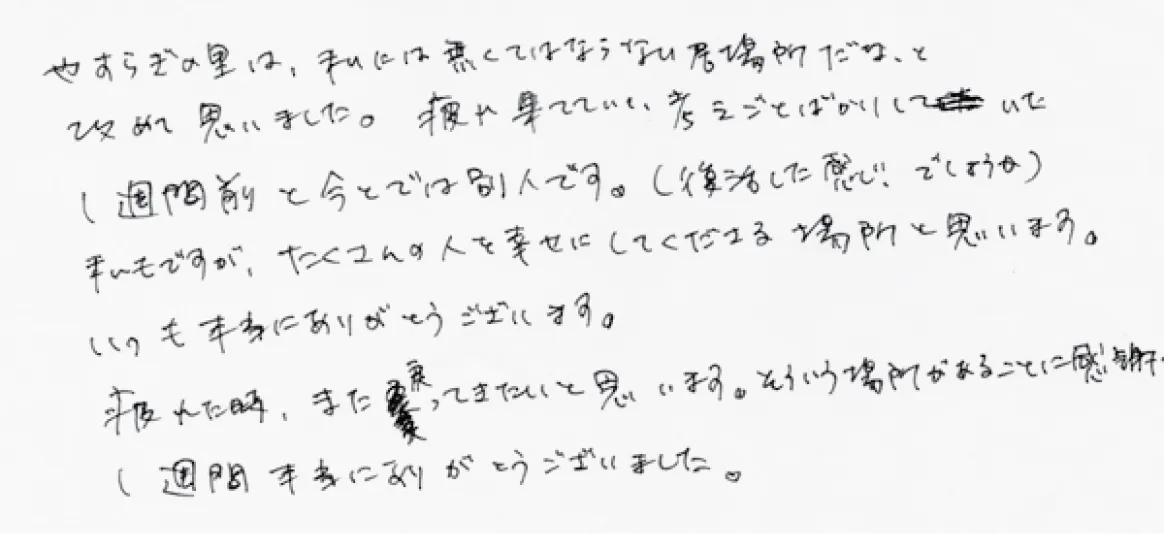 やすらぎの里は、私には無くてはならない居場所だな、と
改めて思いました。疲れ果てていて、考えごとばかりしていた
1週間前と今とでは別人です。(復活した感じ、でしょうか)
私もですが、たくさんの人を幸せにしてくださる場所と思います。
いつも本当にありがとうございます。
疲れた時、また戻ってきたいと思います。そういう場所があることに感謝。
1週間本当にありがとうございました。